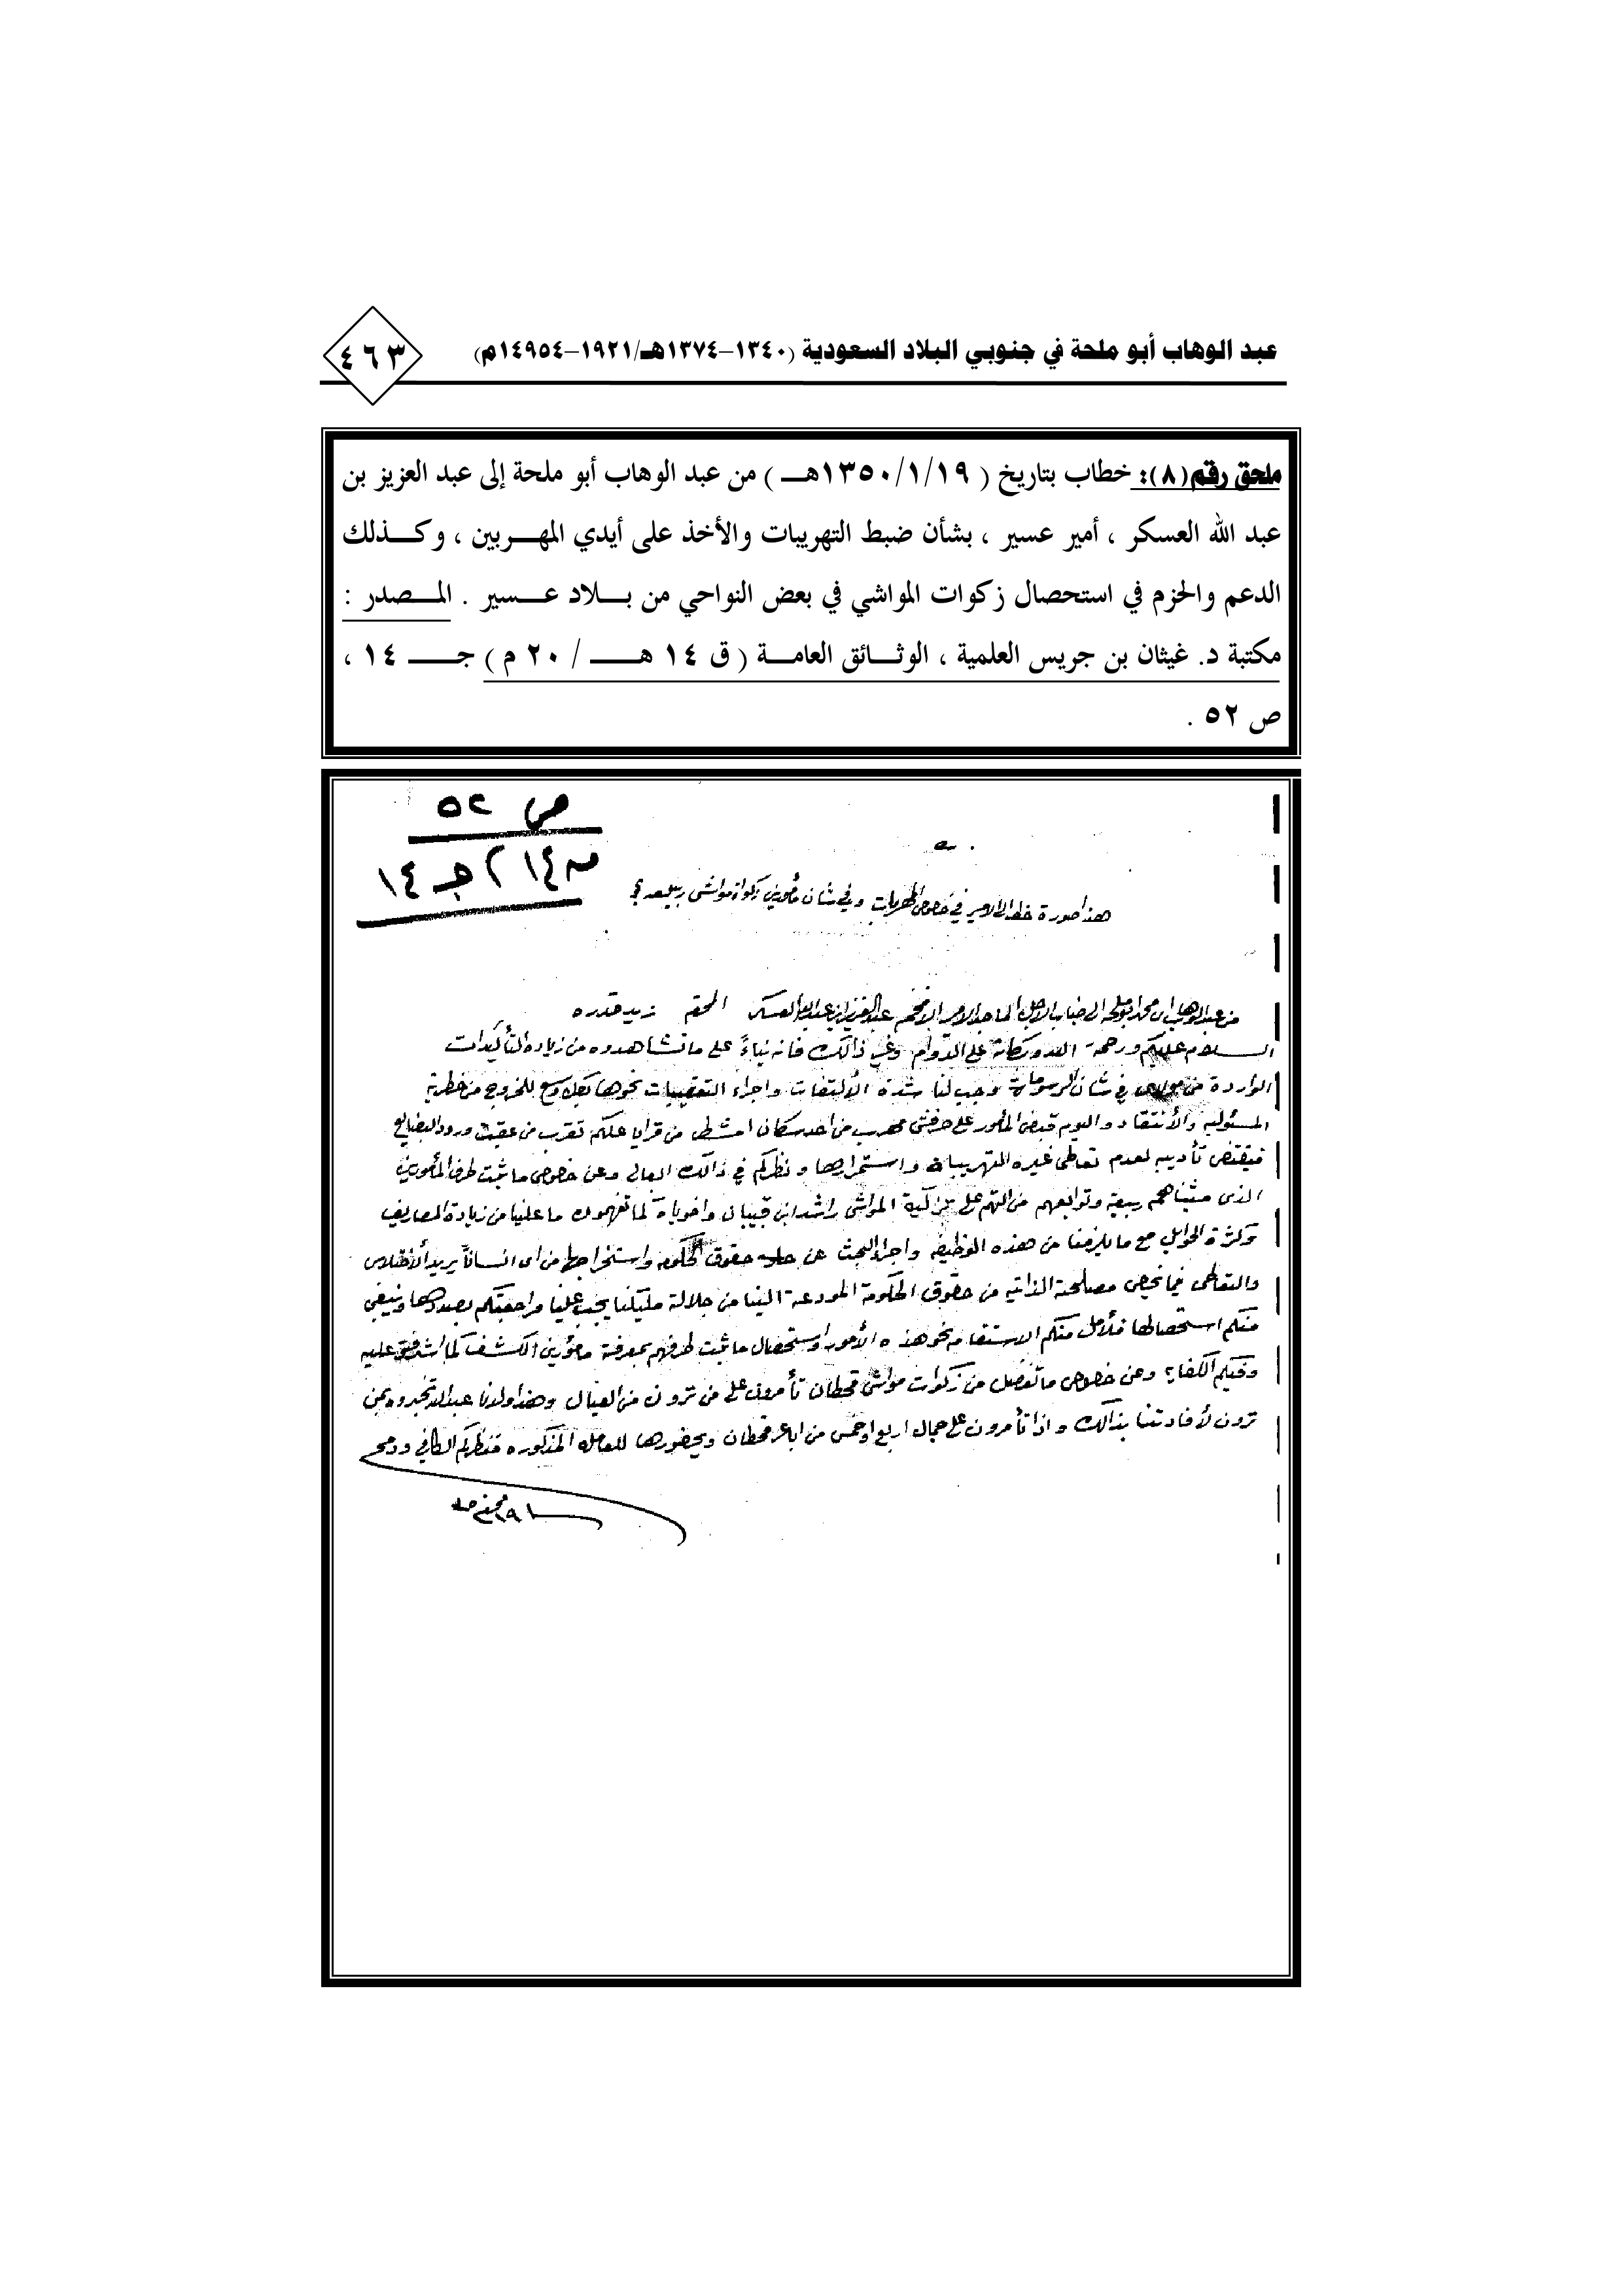 عبد الوهاب أبو ملحة في جنوبي البلاد السعودية (١٣٤٠-١٣٧٤هـ/١٩٢١-١٤٩٥٤م)
٤٦٣
ملحق رقم(٨): خطاب بتاريخ ( ١٣٥٠/١/١٩هـ ) من عبد الوهاب أبو ملحة إلى عبد العزيز بن
عبد الله العسكر ، أمير عسير ، بشأن ضبط التهريبات والأخذ على أيدي المهربين ، وكذلك
الدعم والحزم في استحصال زكوات المواشي في بعض النواحي من بلاد عسير . المصدر :
مكتبة د. غيثان بن جريس العلمية ، الوثائق العامة ( ق ١٤ هـ / ٢٠ م ) جـ ١٤ ،
ص ٥٢ .
ص ٥٢
١٤ جـ ١٤
هذا صورة خط الى الامير في خصوص المهربات وفي شان مأمورين زكواة مواشى
من عبد الوهاب ابن محمد ابو ملحه الى جناب الاجل الماجد الامير الافخم عبد العزيز ابن عبد الله العسكر المحترم زيد قدره
السلام عليكم ورحمة الله وبركاته على الدوام وغب ذالك فانه بناءً على ما تشاهدوه من زيادة التأكيدات
الواردة من في شان الرسومات وجب لنا شدة الألتفات واجراء التعقيبات نحوها للخروج من خطرية
المسئولية والأنتقاد واليوم قبض المأمور على مهرب من احد سكان من قرايا علكم تقرب من ورود البضايع
فيقتضى تأديبه لعدم تعاطى غيره التهريبات واستمرارها ونظركم في ذالك العالى وعن خصوص ما ثبت لطرف المأمورين
الذى ربيعة وتوابعهم من على المواشى راشد ابن واخوياه كما تفهمون ما علينا من زيادة المصاريف
وكثرة مع ما يلزمنا من هذه الوظيفه واجراء البحث عن حقوق الحكومه واستخراجها من اى انساناً يريد الأختلاس
والتعاطى فيما يخص مصلحته الذاتيه من حقوق الحكومة المودعة الينا من جلالة مليكنا يجب علينا مراجعتكم بصددها وينبغى
منكم استحصالها فلأمل منكم الاستقامه نحو هذه الأمور واستحصال ما ثبت لطرفهم بمعرفة مأمورين الكشف عليه
وفيكم الكفاية وعن خصوص ما تفضل من زكوات مواشى قحطان تأمرون على من ترون من العيال وهذا ولدنا عبد الله تخبروه بمن
ترون لأفادتنا بذالك واذا تأمرون على جمال اربع او خمس من اباعر قحطان ويحضورها المذكوره فنظركم الكافى ودمتم